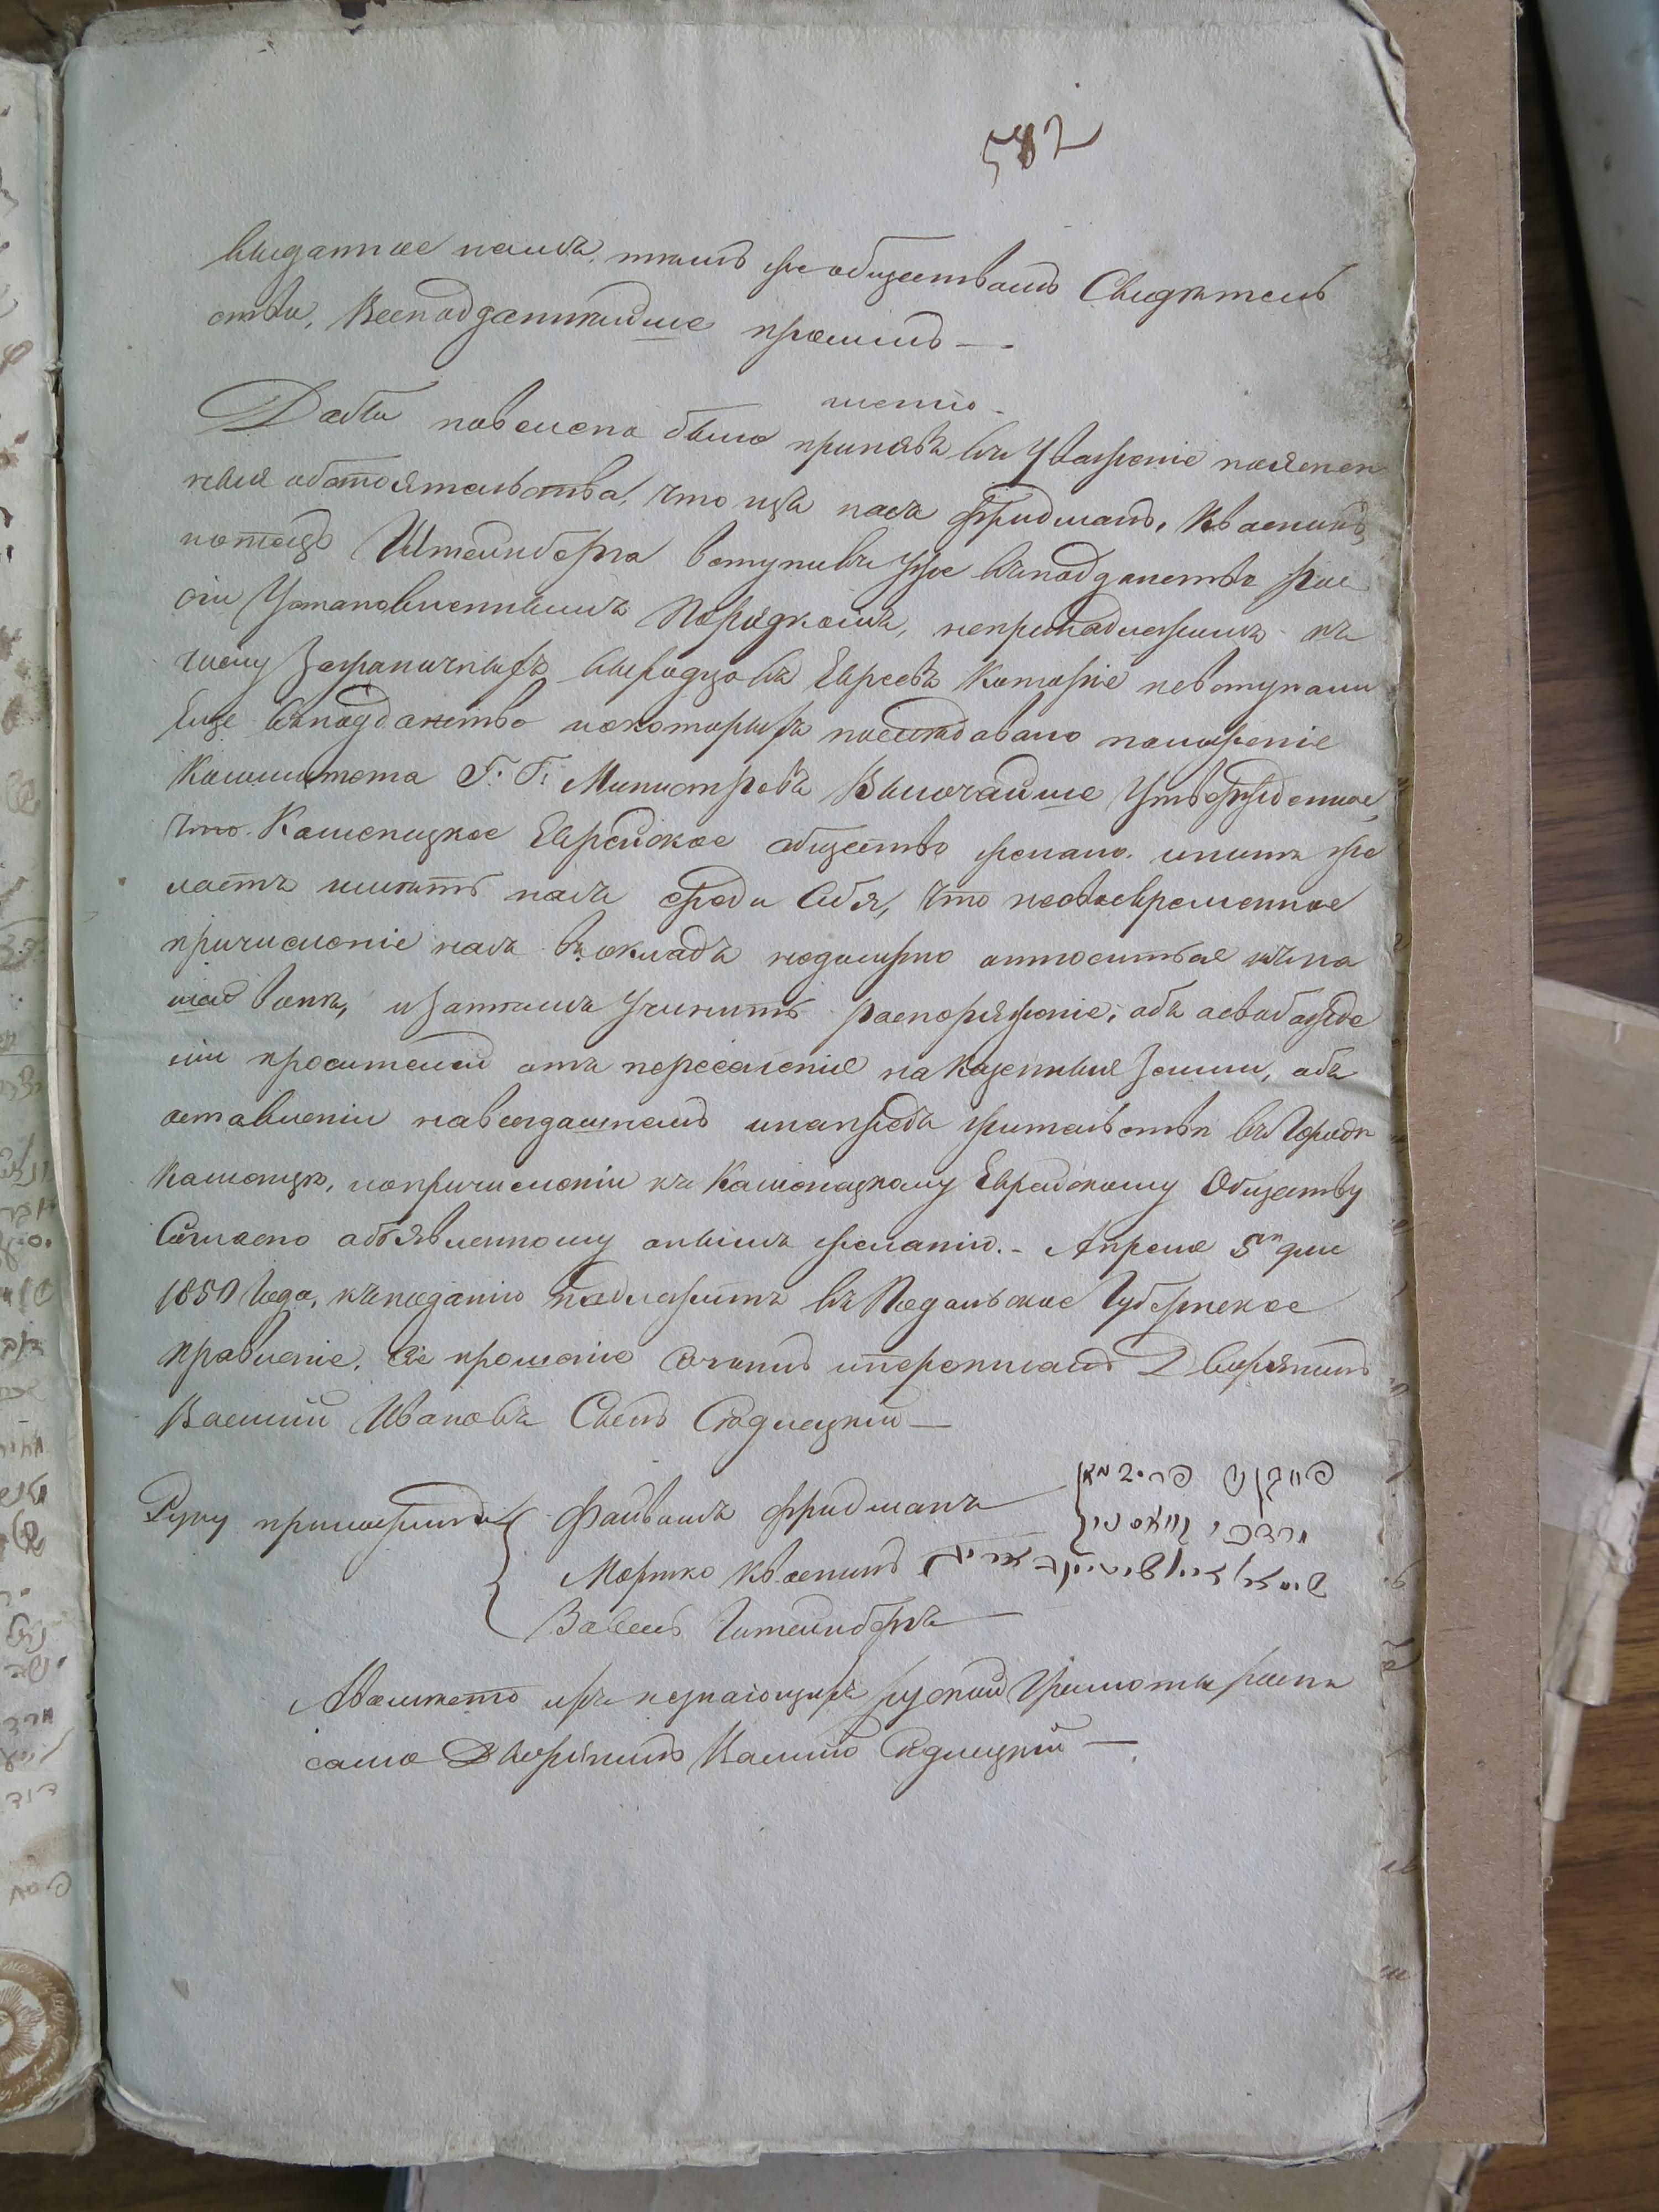 582
выданное намъ темъ же обществомъ Свидетель
ство, Всеподданнейше просимъ —
шено
Дабы повелено было принять въ Уваженіе поясненъ
ныя обстоятельства, что изъ насъ Фридманъ, Квасникъ
потецъ Штейнберга вступивъ уже въ подданство Рос
сіи Установленнымъ Порядкомъ, непринадлежимъ къ
числу Заграничныхъ выходцовъ Евреевъ Которіе невступали
Еще въ подданство и о которыхъ последовало положеніе
Коммитета Г. Г. Министровъ Высочайше Утвержденное,
что Каменецкое Еврейское общество желало и ныне же
лаетъ иметь насъ среди Себя, что несвоевременное
причисленіе насъ въ окладъ недолжно относиться къ на
шей вине, и затемъ Учинить распоряженіе, объ освобожде
ніи просителей отъ переселенія на Казенныя Земли, объ
оставленіи на всегдашнемъ и напредъ жительстве въ Городе
Каменце, и о причисленіи къ Каменецкому Еврейскому Обществу
Согласно объявленному онымъ желанію. - Апреля 5го дня
1850 Года, къ поданію надлежитъ въ Подольское Губернское
правленіе. Сіе прошеніе Сочинилъ и переписалъ Дворянинъ
Василий Ивановъ Сынъ Седлецкій —
Руку приложили { Файвишъ Фридманъ — פייבוש פרידמאן
Мортко Квасникъ מרדכי קוואסניק
Вавель Штейнбергъ —
А вместо ихъ незнающихъ руской Грамоты роспи
сался Дворянинъ Василий Седлецкій —